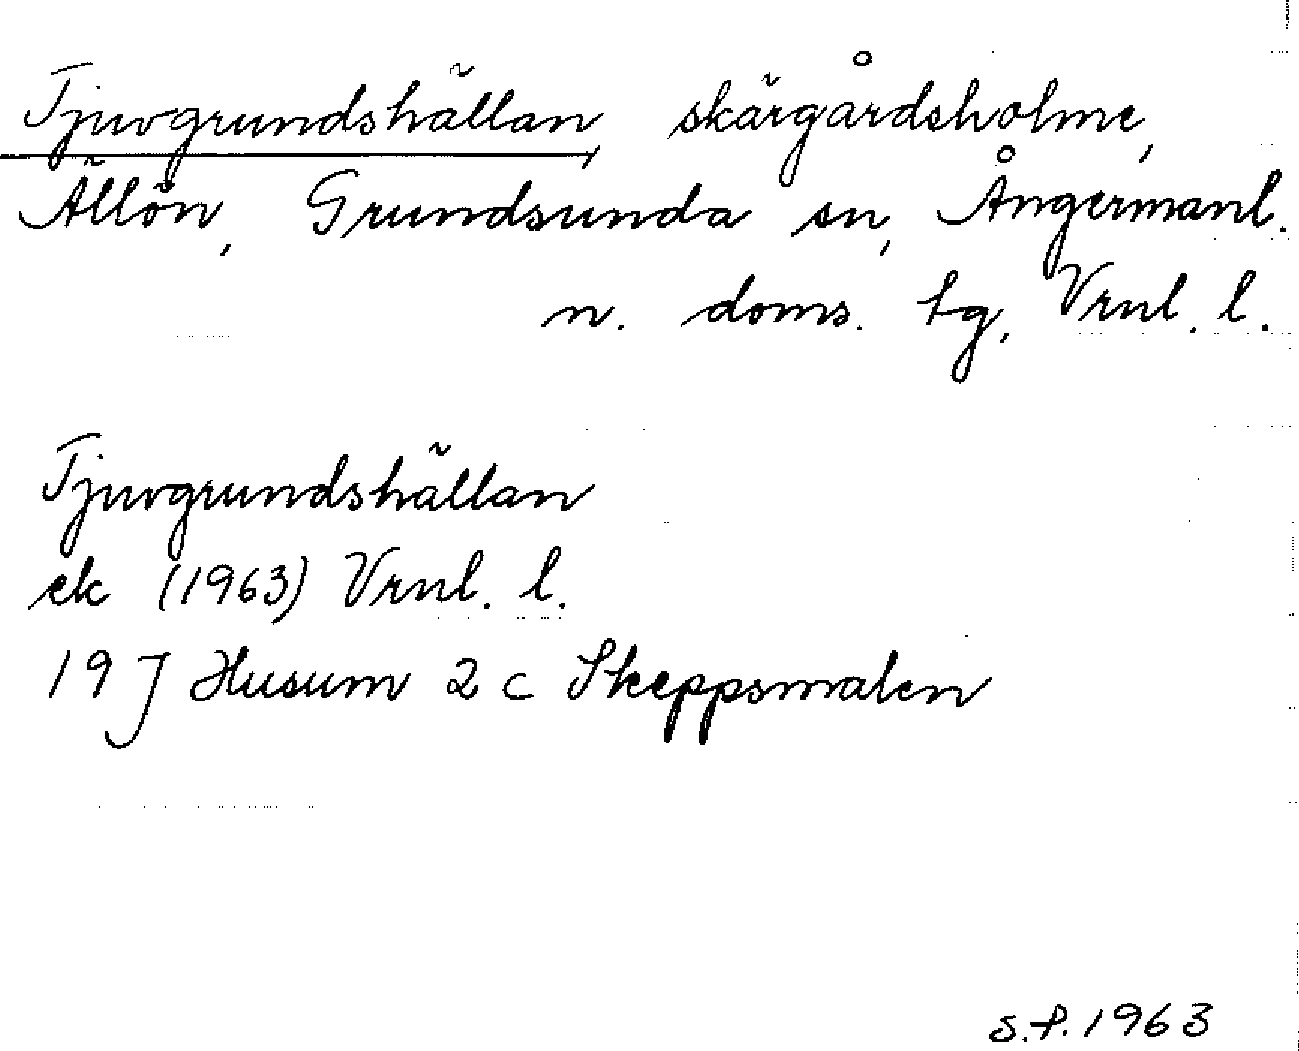 Tjuvgrundshällan, skärgårdsholme,
Ällön, Grundsunda sn, Ångermanl.
n. doms. tg, Vrnl. l.
Tjuvgrundshällan
ek (1963) Vrnl. l.
19 J Husum 2 c Skeppsmalen
S.P. 1963